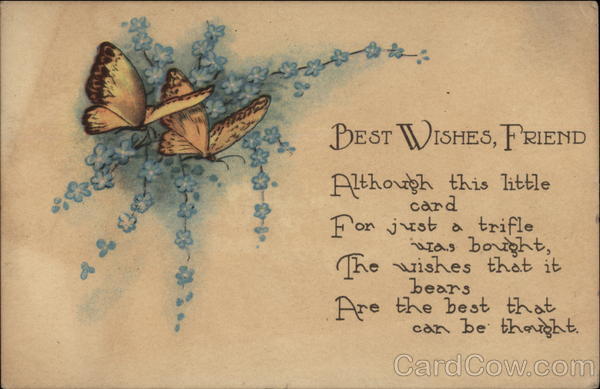 Best Wishes, Friend
Although this little
card
For just a trifle
was bought,
The wishes that it
bears
Are the best that
can be thought.
CardCow.com